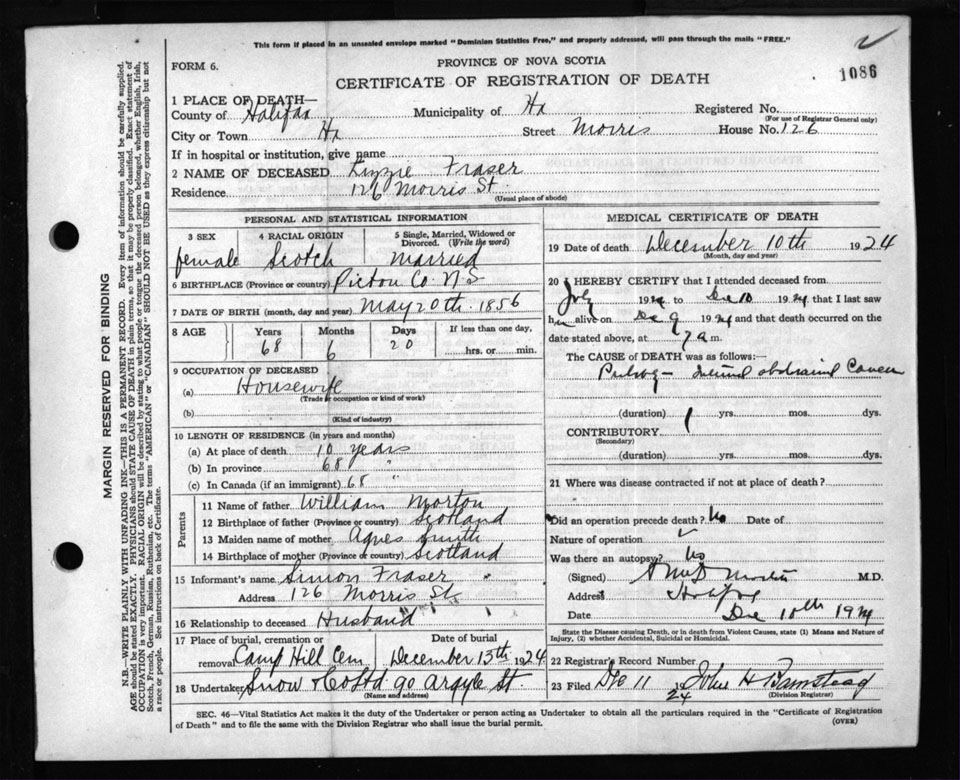 This form if placed in an unsealed envelope marked "Dominion Statistics Free," and properly addressed, will pass through the mails "FREE."
FORM 6.
PROVINCE OF NOVA SCOTIA
CERTIFICATE OF REGISTRATION OF DEATH
1086
MARGIN RESERVED FOR BINDING
N.B.—WRITE PLAINLY WITH UNFADING INK—THIS IS A PERMANENT RECORD. Every item of information should be carefully supplied.
AGE should be stated EXACTLY. PHYSICIANS should STATE CAUSE OF DEATH in plain terms, so that it may be properly classified. Exact statement of
OCCUPATION is very important. RACIAL ORIGIN will be described by stating to what people or tongue the deceased person belonged, whether English, Irish,
Scotch, French, German, Russian, Ruthenian, etc. The terms "AMERICAN" or "CANADIAN" SHOULD NOT BE USED as they express citizenship but not
a race or people. See instructions on back of Certificate.
1 PLACE OF DEATH—
County of Halifax Municipality of Hx Registered No.
(For use of Registrar General only)
City or Town Hx Street Morris House No. 126
If in hospital or institution, give name
2 NAME OF DECEASED Lizzie Fraser
Residence 126 Morris St.
(Usual place of abode)
PERSONAL AND STATISTICAL INFORMATION
3 SEX 4 RACIAL ORIGIN 5 Single, Married, Widowed or Divorced. (Write the word)
female Scotch Married
6 BIRTHPLACE (Province or country) Pictou Co N.S
7 DATE OF BIRTH (month, day and year) May 20th 1856
8 AGE Years Months Days If less than one day,
68 6 20 hrs. or min.
9 OCCUPATION OF DECEASED
(a) Housewife
(Trade or occupation or kind of work)
(b)
(Kind of industry)
10 LENGTH OF RESIDENCE (in years and months)
(a) At place of death 10 years
(b) In province 68 "
(c) In Canada (if an immigrant) 68 "
Parents
11 Name of father William Morton
12 Birthplace of father (Province or country) Scotland
13 Maiden name of mother Agnes Smith
14 Birthplace of mother (Province or country) Scotland
15 Informant's name Simon Fraser
Address 126 Morris St
16 Relationship to deceased Husband
17 Place of burial, cremation or removal Camp Hill Cem Date of burial December 13th 1924
18 Undertaker Snow & Co Ltd 90 Argyle St.
(Name and address)
MEDICAL CERTIFICATE OF DEATH
19 Date of death December 10th 1924
(Month, day and year)
20 I HEREBY CERTIFY that I attended deceased from
July 1924 to Dec 10 1924 that I last saw
her alive on Dec 9 1924 and that death occurred on the
date stated above, at 7 a m.
The CAUSE OF DEATH was as follows:
abdominal Cancer
(duration) 1 yrs. mos. dys.
CONTRIBUTORY
(Secondary)
(duration) yrs. mos. dys.
21 Where was disease contracted if not at place of death?
Did an operation precede death? No Date of
Nature of operation
Was there an autopsy? No
(Signed) M.D.
Address Halifax
Date Dec 10th 1924
State the Disease causing Death, or in death from Violent Causes, state (1) Means and Nature of
Injury, (2) whether Accidental, Suicidal or Homicidal.
22 Registrar's Record Number
23 Filed Dec 11 1924 John H Barnstead
(Division Registrar)
SEC. 46—Vital Statistics Act makes it the duty of the Undertaker or person acting as Undertaker to obtain all the particulars required in the "Certificate of Registration
of Death" and to file the same with the Division Registrar who shall issue the burial permit.
(OVER)